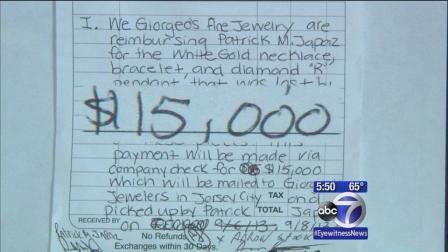 I. We Giorgeos Fine Jewelry are
reimbursing Patrick M. Japaz
for the White Gold necklace,
bracelet, and diamond "R"
pendant that was lost
$15,000
payment will be made via
company check for $15,000
which will be mailed to
Jewelers in Jersey City TAX on
Picked up by Patrick TOTAL
RECEIVED BY on 9/8/13
No Refunds
Exchanges within 30 Days.
5:50 65°
abc 7
#EyewitnessNews